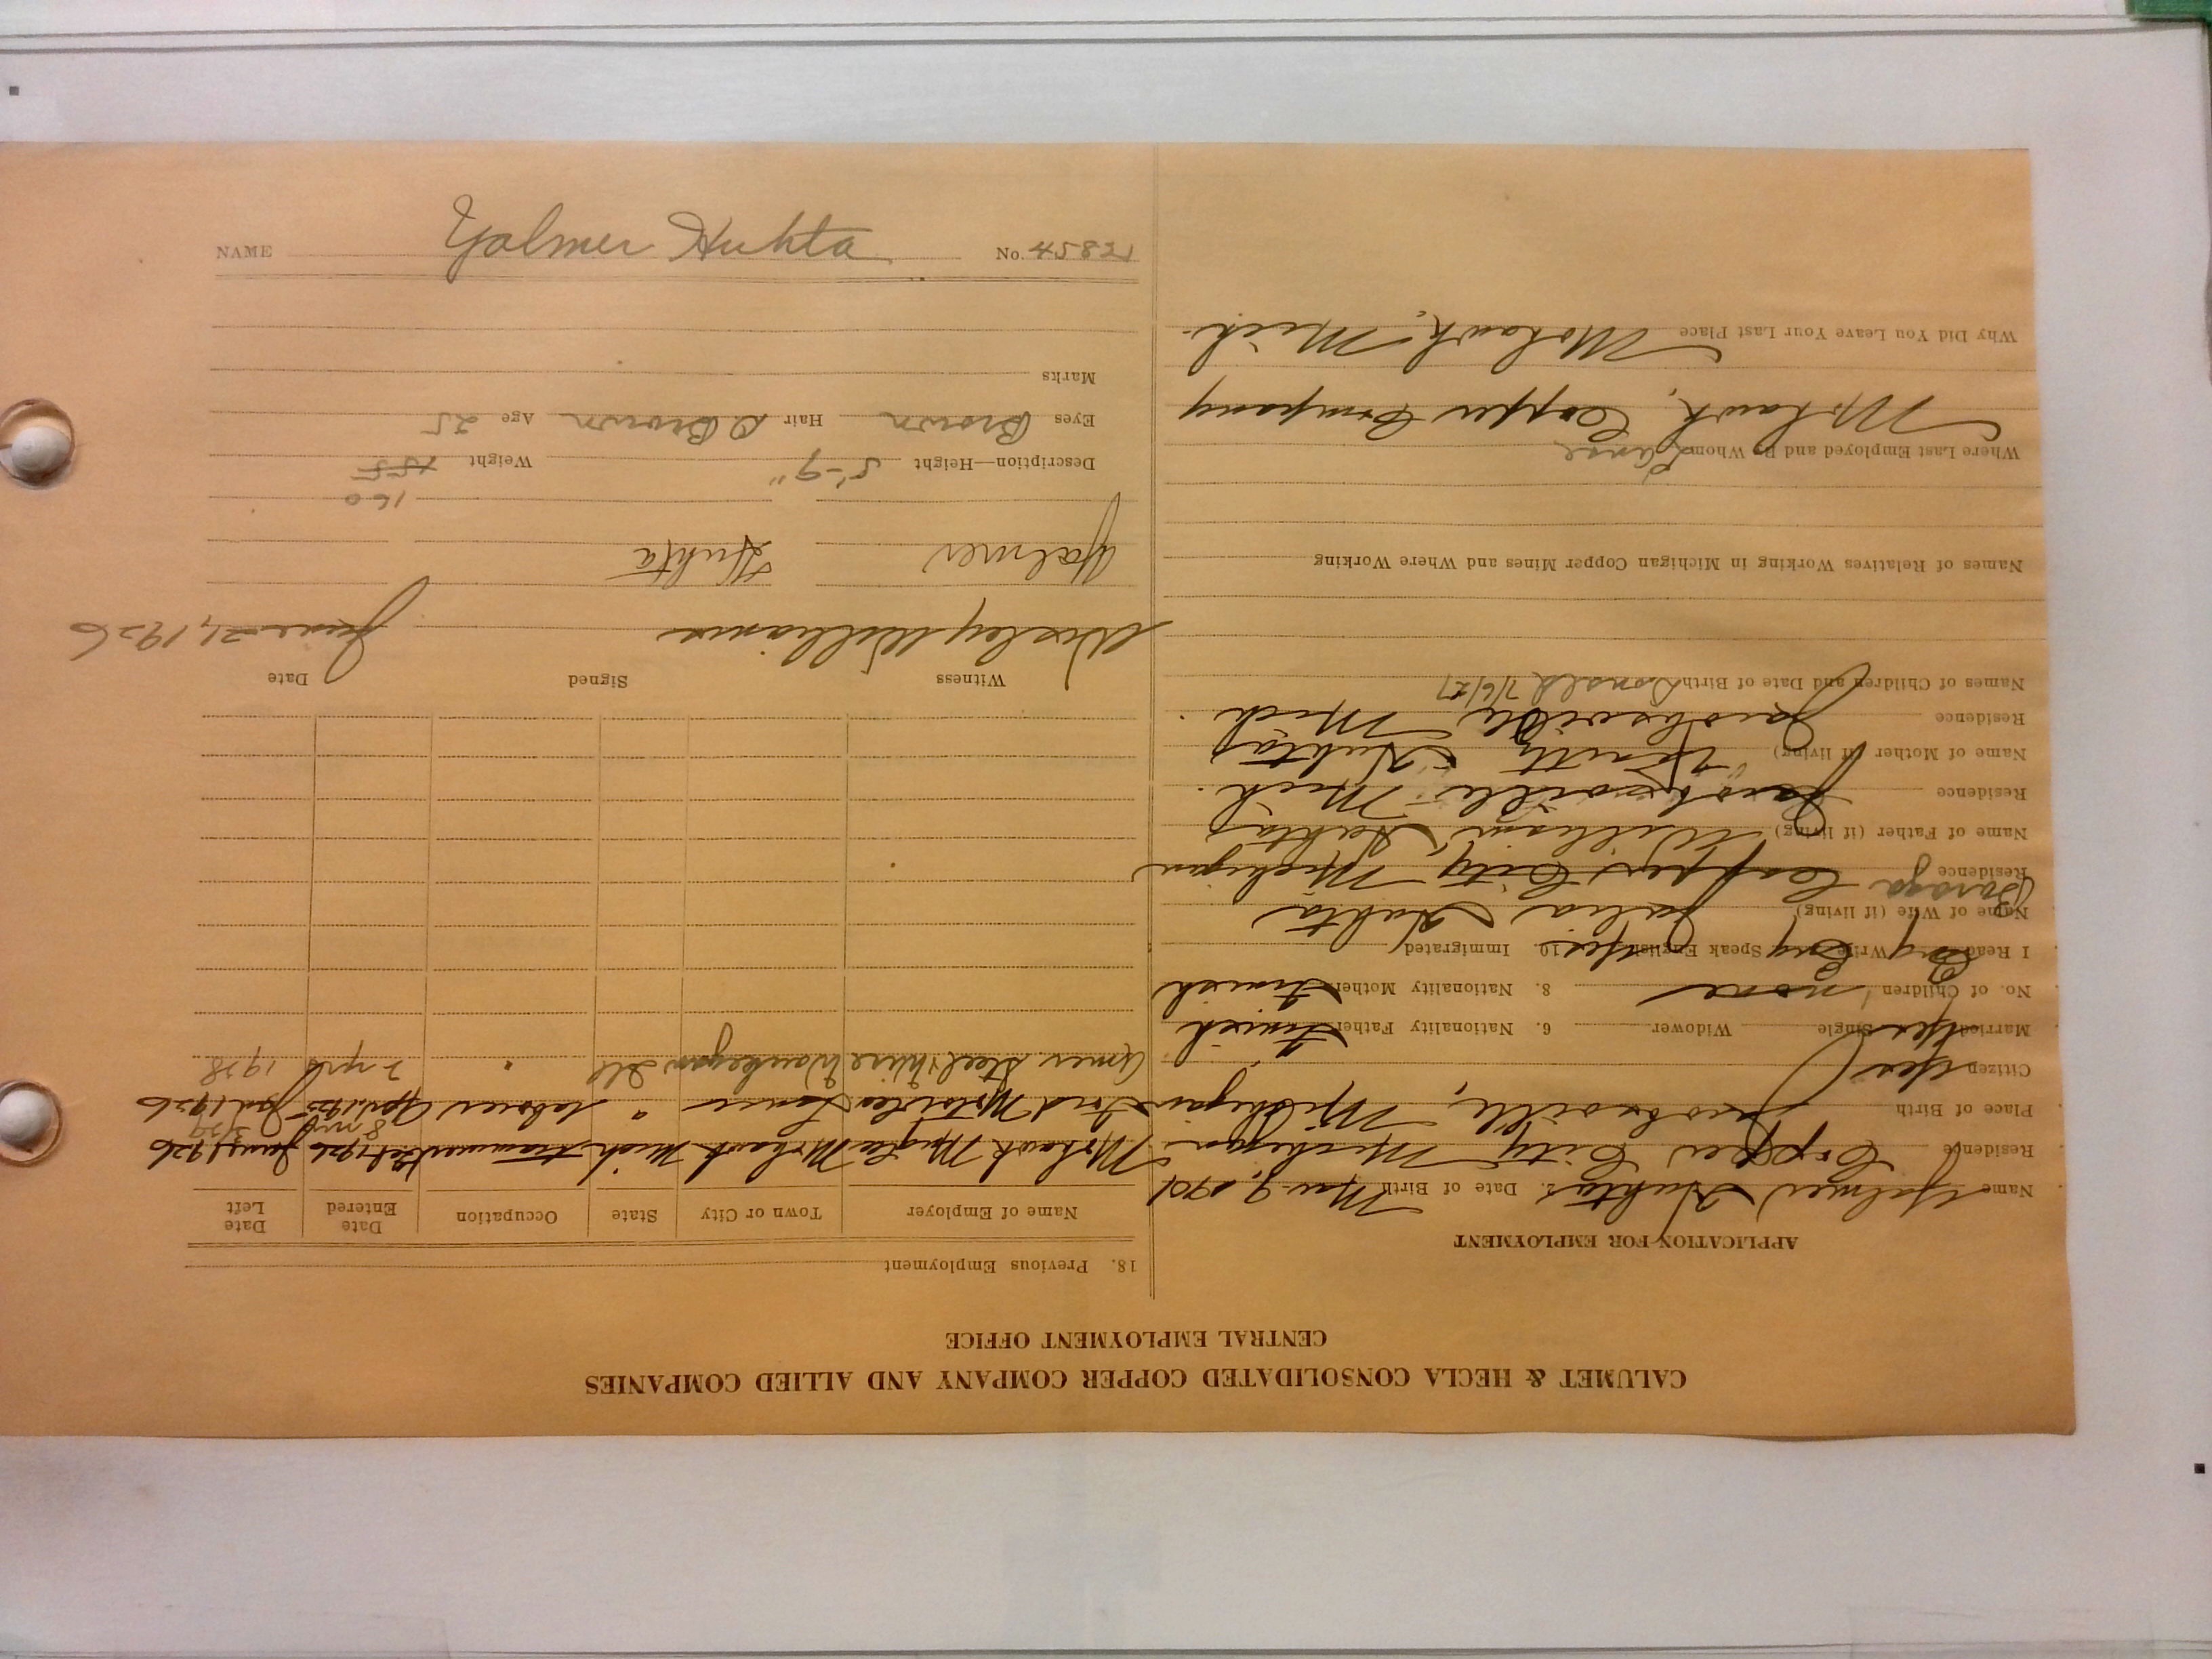 CALUMET & HECLA CONSOLIDATED COPPER COMPANY AND ALLIED COMPANIES
CENTRAL EMPLOYMENT OFFICE
APPLICATION FOR EMPLOYMENT
Name Yalmer Huhta 2. Date of Birth Mar 9, 1901
Residence Copper City Michigan
Place of Birth Jacobsville, Michigan
Citizen Yes
Married Yes Single Widower 6. Nationality Father Finish
No. of Children none 8. Nationality Mother Finish
I Read Eng Write Eng Speak English Yes 10. Immigrated
Name of Wife (if living) Julia Huhta
Residence Baraga Copper City, Michigan
Name of Father (if living) William Huhta
Residence Jacobsville Mich.
Name of Mother (if living) Huhta
Residence Jacobsville, Mich.
Names of Children and Date of Birth Donald 7/6/27
Names of Relatives Working in Michigan Copper Mines and Where Working
Where Last Employed and By Whom Lanse
Mohawk, Copper Company
Why Did You Leave Your Last Place Mohawk, Mich.
18. Previous Employment
Name of Employer Town or City State Occupation Date Entered Date Left
Mohawk Mng Co Mohawk Mich trammer 1926 June 1926
8 mo 3/29
Ford Motor Co Lance " laborer Apr. 1925 Jan 1926
Amer Steel & Wire Waukegan Ill " 2 yrs 1928
Witness Signed Date
Wesley Williams June 21, 1926
Yalmer Huhta
160
Description—Height 5'-9" Weight 155
Eyes Brown Hair D. Brown Age 25
Marks
NAME Yalmer Huhta No. 45821